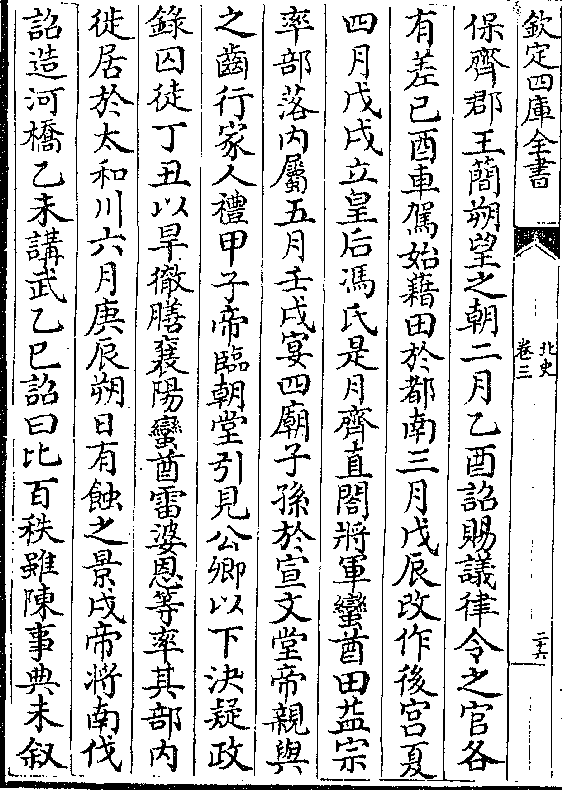 欽定四庫全書
北史
卷三
二六
保齊郡王蕳朔望之朝二月乙酉詔賜議律令之官各
有差己酉車駕始藉田於都南三月戊辰改作後宮夏
四月戊戌立皇后馮氏是月齊直閤將軍蠻酋田益宗
率部落內屬五月壬戌宴四廟子孫於宣文堂帝親與
之齒行家人禮甲子帝臨朝堂引見公卿以下決疑政
錄囚徒丁丑以旱徹膳襄陽蠻酋雷婆思等率其部內
徙居於太和川六月庚辰朔日有蝕之景戌帝將南伐
詔造河橋乙未講武乙巳詔曰比百秩雖陳事典未叙